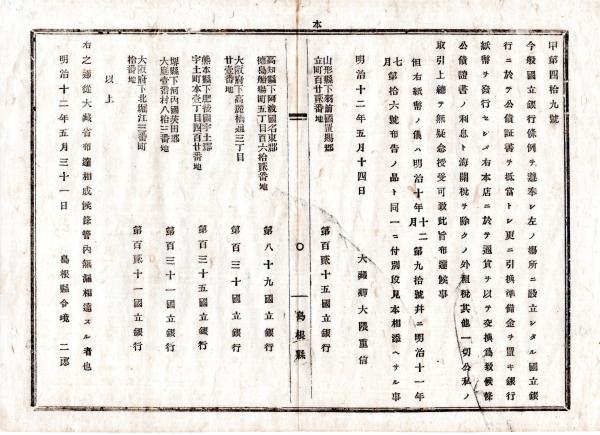 本
甲第四拾九號
今般國立銀行條例ヲ遵奉シ左ノ場所ニ設立シタル國立銀
行ニ於テ公債証書ヲ抵當トシ更ニ引換準備金ヲ置キ銀行
紙幣ヲ發行セシメ右本店ニ於テ通貨ヲ以テ交換爲致候條
公債證書ノ利息ト海關税ヲ除クノ外租税其他一切公私ノ
取引上總テ無疑念授受可致此旨布達候事
但右紙幣ノ儀ハ明治十年十二月第九拾號幷ニ明治十一年
七月第拾六號布告ノ品ト同一ニ付別段見本相添ヘサル事
明治十二年五月十四日
大藏卿大隈重信
山形縣下羽前國置賜郡
立町百廿番地
第百貳十五國立銀行
島根縣
高知縣下阿波國名東郡
徳島船場町五丁目百六拾番地
第八十九國立銀行
大阪府下高麗橋通三丁目
廿壹番地
第百三十國立銀行
熊本縣下肥後國宇土郡
宇土町本壹丁目四百廿番地
第百三十五國立銀行
堺縣下河內國茨田郡
大庭壹番村八拾三番地
第百三十一國立銀行
大阪府下北堀江三番町
拾番地
第百貳十一國立銀行
以上
右之通從大藏省布達相成候條管內無漏相達スル者也
明治十二年五月三十一日
島根縣令境二郎